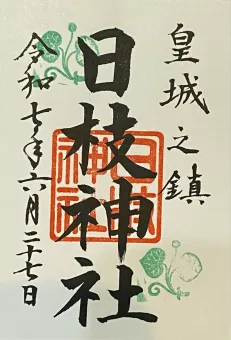 皇城之鎮
日枝神社
令和七年六月二十七日
日枝神社